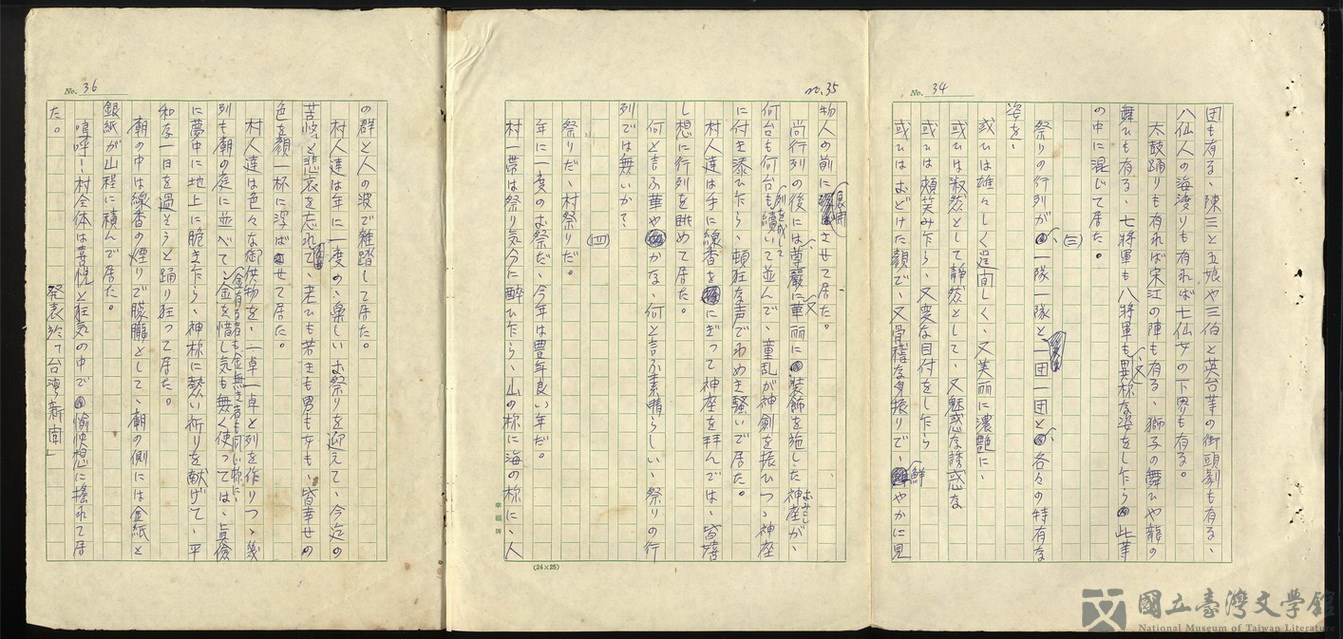 No. 34
団も有る、陳三と五娘や三伯と英台等の街頭劇も有る、
八仙人の海渡りも有れば七仙女の下界も有る。
太鼓踊りも有れば宋江の陣も有る、獅子の舞ひや龍の
舞ひも有る、七将軍も八将軍も、又異様な姿をし乍ら此等
の中に混じて居た。
(三)
祭りの行列が、一隊一隊と、一団一団と、各々の特有な
姿を、
或ひは雄々しく逞間しく、又美麗に濃艶に、
或ひは寂然として静然として、又魅惑な誘惑な
或ひは頬笑み乍ら、又変な目付をし乍ら
或ひはおどけた顔で、又骨稽な身振りで、鮮やかに見
no. 35
物人の前に展開させて居た。
尚行列の後には尊厳に、又華麗に装飾を施した神座が、
おみこし
何台も何台も列を成して續いて並んで、童乱が神剣を振ひつゝ神座
に付き添ひ乍ら、頓狂な声でわめき騒いで居た。
村人達は手に線香をにぎって神座を拝んでは、皆嬉
し想に行列を眺めて居た。
何と言ふ華やかな、何と言ふ素晴らしい、祭りの行
列では無いか?
(四)
祭りだ、村祭りだ。
年に一度のお祭だ、今年は豊年良い年だ。
村一帯は祭り気分に酔ひ乍ら、山の様に海の様に、人
(24×25)
No. 36
の群と人の波で雑踏して居た。
村人達は年に一度の、楽しいお祭りを迎えて、今迄の
苦悦と悲哀を忘れて、老ひも若きも男も女も、皆幸せの
色を顔一杯に浮ばせて居た。
村人達は色々な御供物を、一卓一卓と列を作りつゝ幾
列も廟の庭に並べて、金有る者も金無き者も同じ様に、金を惜し気も無く使っては、真倹
に夢中に地上に脆き乍ら、神様に熱い祈りを献げて、平
和な一日を過そうと踊り狂って居た。
廟の中は線香の煙りで朦朧として、廟の側には金紙と
銀紙が山程に積んで居た。
嗚呼!村全体は喜悦と狂気の中で愉快想に搖れて居
た。
発表於「台湾新聞」
國立臺灣文學館
National Museum of Taiwan Literature